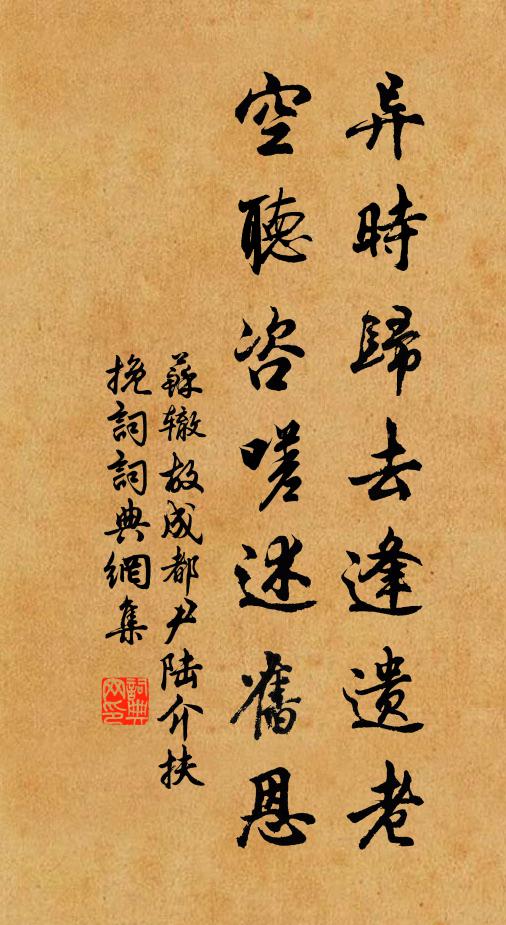 异時歸去逢遗老
空聽咨嗟述舊恩
蘇辙故成都尹陆介扶
挽詞詞典網集
詞典网印